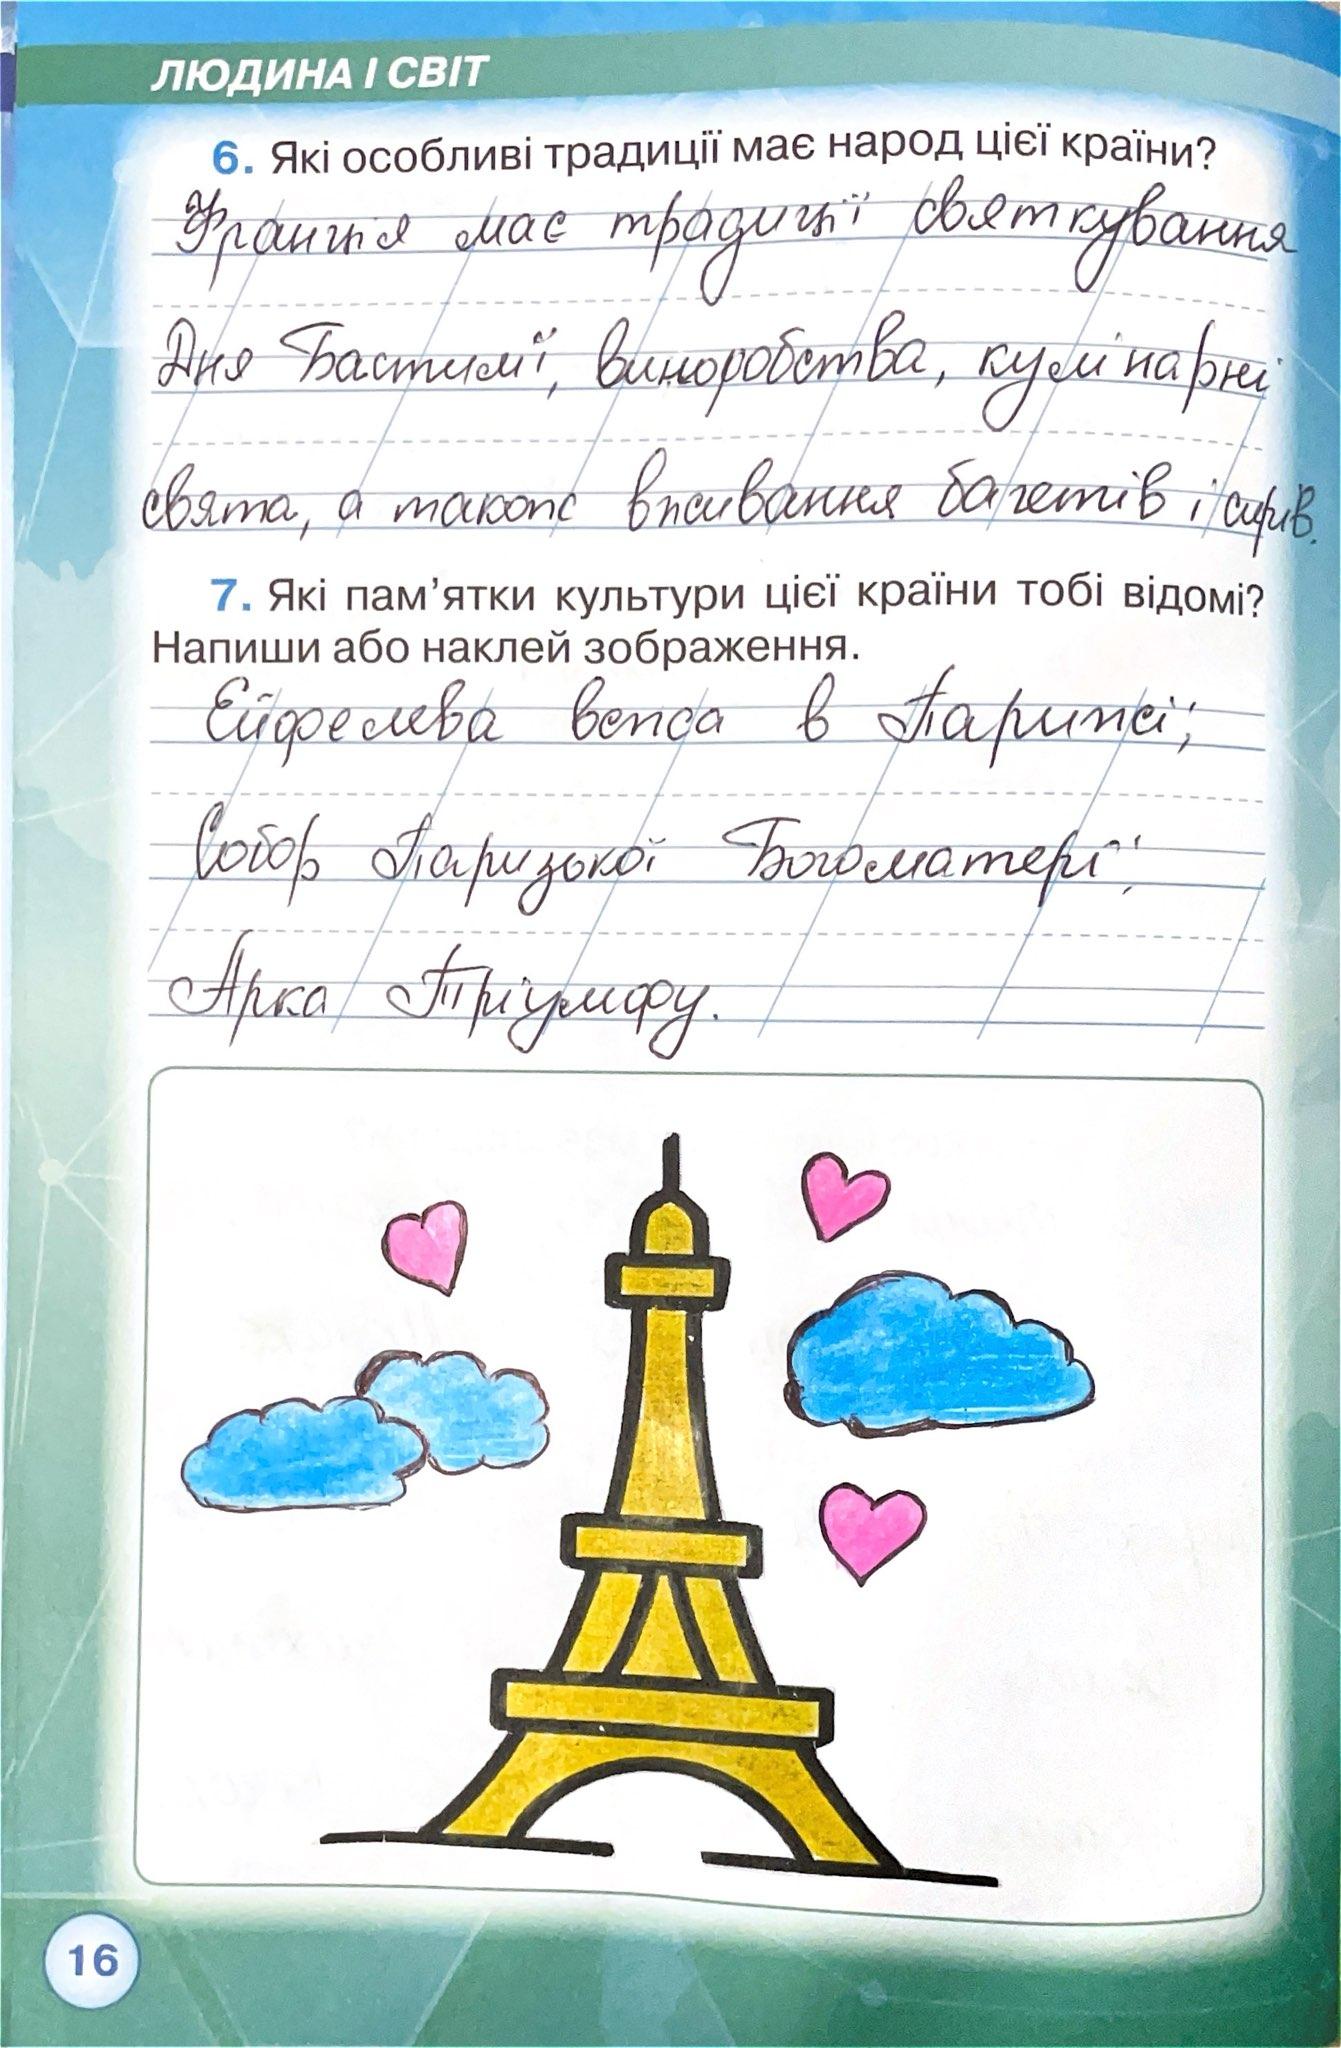 ЛЮДИНА І СВІТ
6. Які особливі традиції має народ цієї країни?
Франція має традиції святкування
Дня Бастилії, виноробства, кулінарні
свята, а також вживання багетів і сирів.
7. Які пам'ятки культури цієї країни тобі відомі?
Напиши або наклей зображення.
Ейфелева вежа в Парижі;
Собор Паризької Богоматері;
Арка Тріумфу.
16